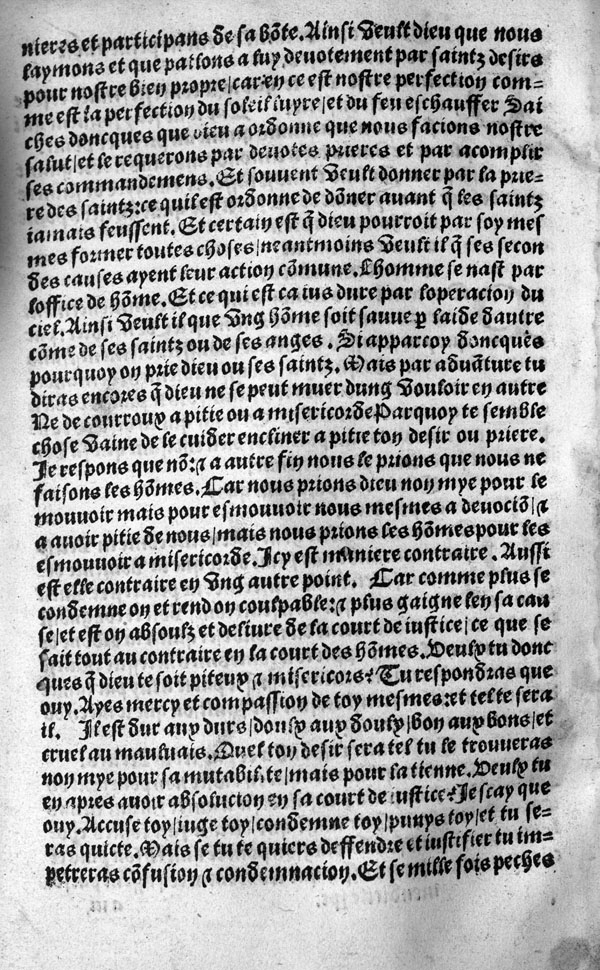 nieres et participans de sa bōte. Ainsi veult dieu que nous
laymons et que parlons a luy devotement par saintz desirs
pour nostre bien propre/car en ce est nostre perfection com=
me est la perfection du soleil luyre/et du feu eschauffer Sai
ches doncques que dieu a ordonne que nous facions nostre
salut/et le requerons par devotes prieres et par acomplir
ses commandemens. Et souvent veult donner par la prie=
re des saintz:ce quil est ordonne de dōner avant q̄ les saintz
iamais feussent. Et certain est q̄ dieu pourroit par soy mes
mes former toutes choses/neantmoins veult il q̄ ses secon
des causes ayent leur action cōmune. Lhomme se nast par
loffice de hōme. Et ce qui est ca ius dure par loperacion du
ciel. Ainsi veult il que ung hōme soit sauve ꝑ laide dautre
cōme de ses saintz ou de ses anges. Si apparcoy doncques
pourquoy on prie dieu ou ses saintz. Mais par advāture tu
diras encores q̄ dieu ne se peut muer dung vouloir en autre
Ne de courroux a pitie ou a misericorde Parquoy te semble
chose vaine de le cuider encliner a pitie ton desir ou priere.
Je respons que nō:⁊ a autre fin nous le prions que nous ne
faisons les hōmes. Car nous prions dieu non mye pour le
mouvoir mais pour esmouvoir nous mesmes a devociō/⁊
a avoir pitie de nous/mais nous prions les hōmes pour les
esmouvoir a misericorde. Icy est maniere contraire. Aussi
est elle contraire en ung autre point. Car comme plus se
condemne on et rend on coulpable:⁊ plus gaigne len sa cau
se/et est on absoulz et delivre de la court de iustice/ce que se
fait tout au contraire en la court des hōmes. Veulx tu donc
ques q̄ dieu te soit piteux ⁊ misericors? Tu respondras que
ouy. Ayes mercy et compassion de toy mesmes:et tel te sera
il. Il est dur aux durs/doulx aux doulx/bon aux bons/et
cruel au maulvais. Quel ton desir sera tel tu le trouveras
non mye pour sa mutabilite/mais pour la tienne. Veulx tu
en apres avoir absolucion en sa court de iustice? Je scay que
ouy. Accuse toy/iuge toy/condemne toy/punys toy/et tu se=
ras quicte. Mais se tu te quiers deffendre et iustifier tu im=
petreras cōfusion ⁊ condemnacion. Et se mille fois peches